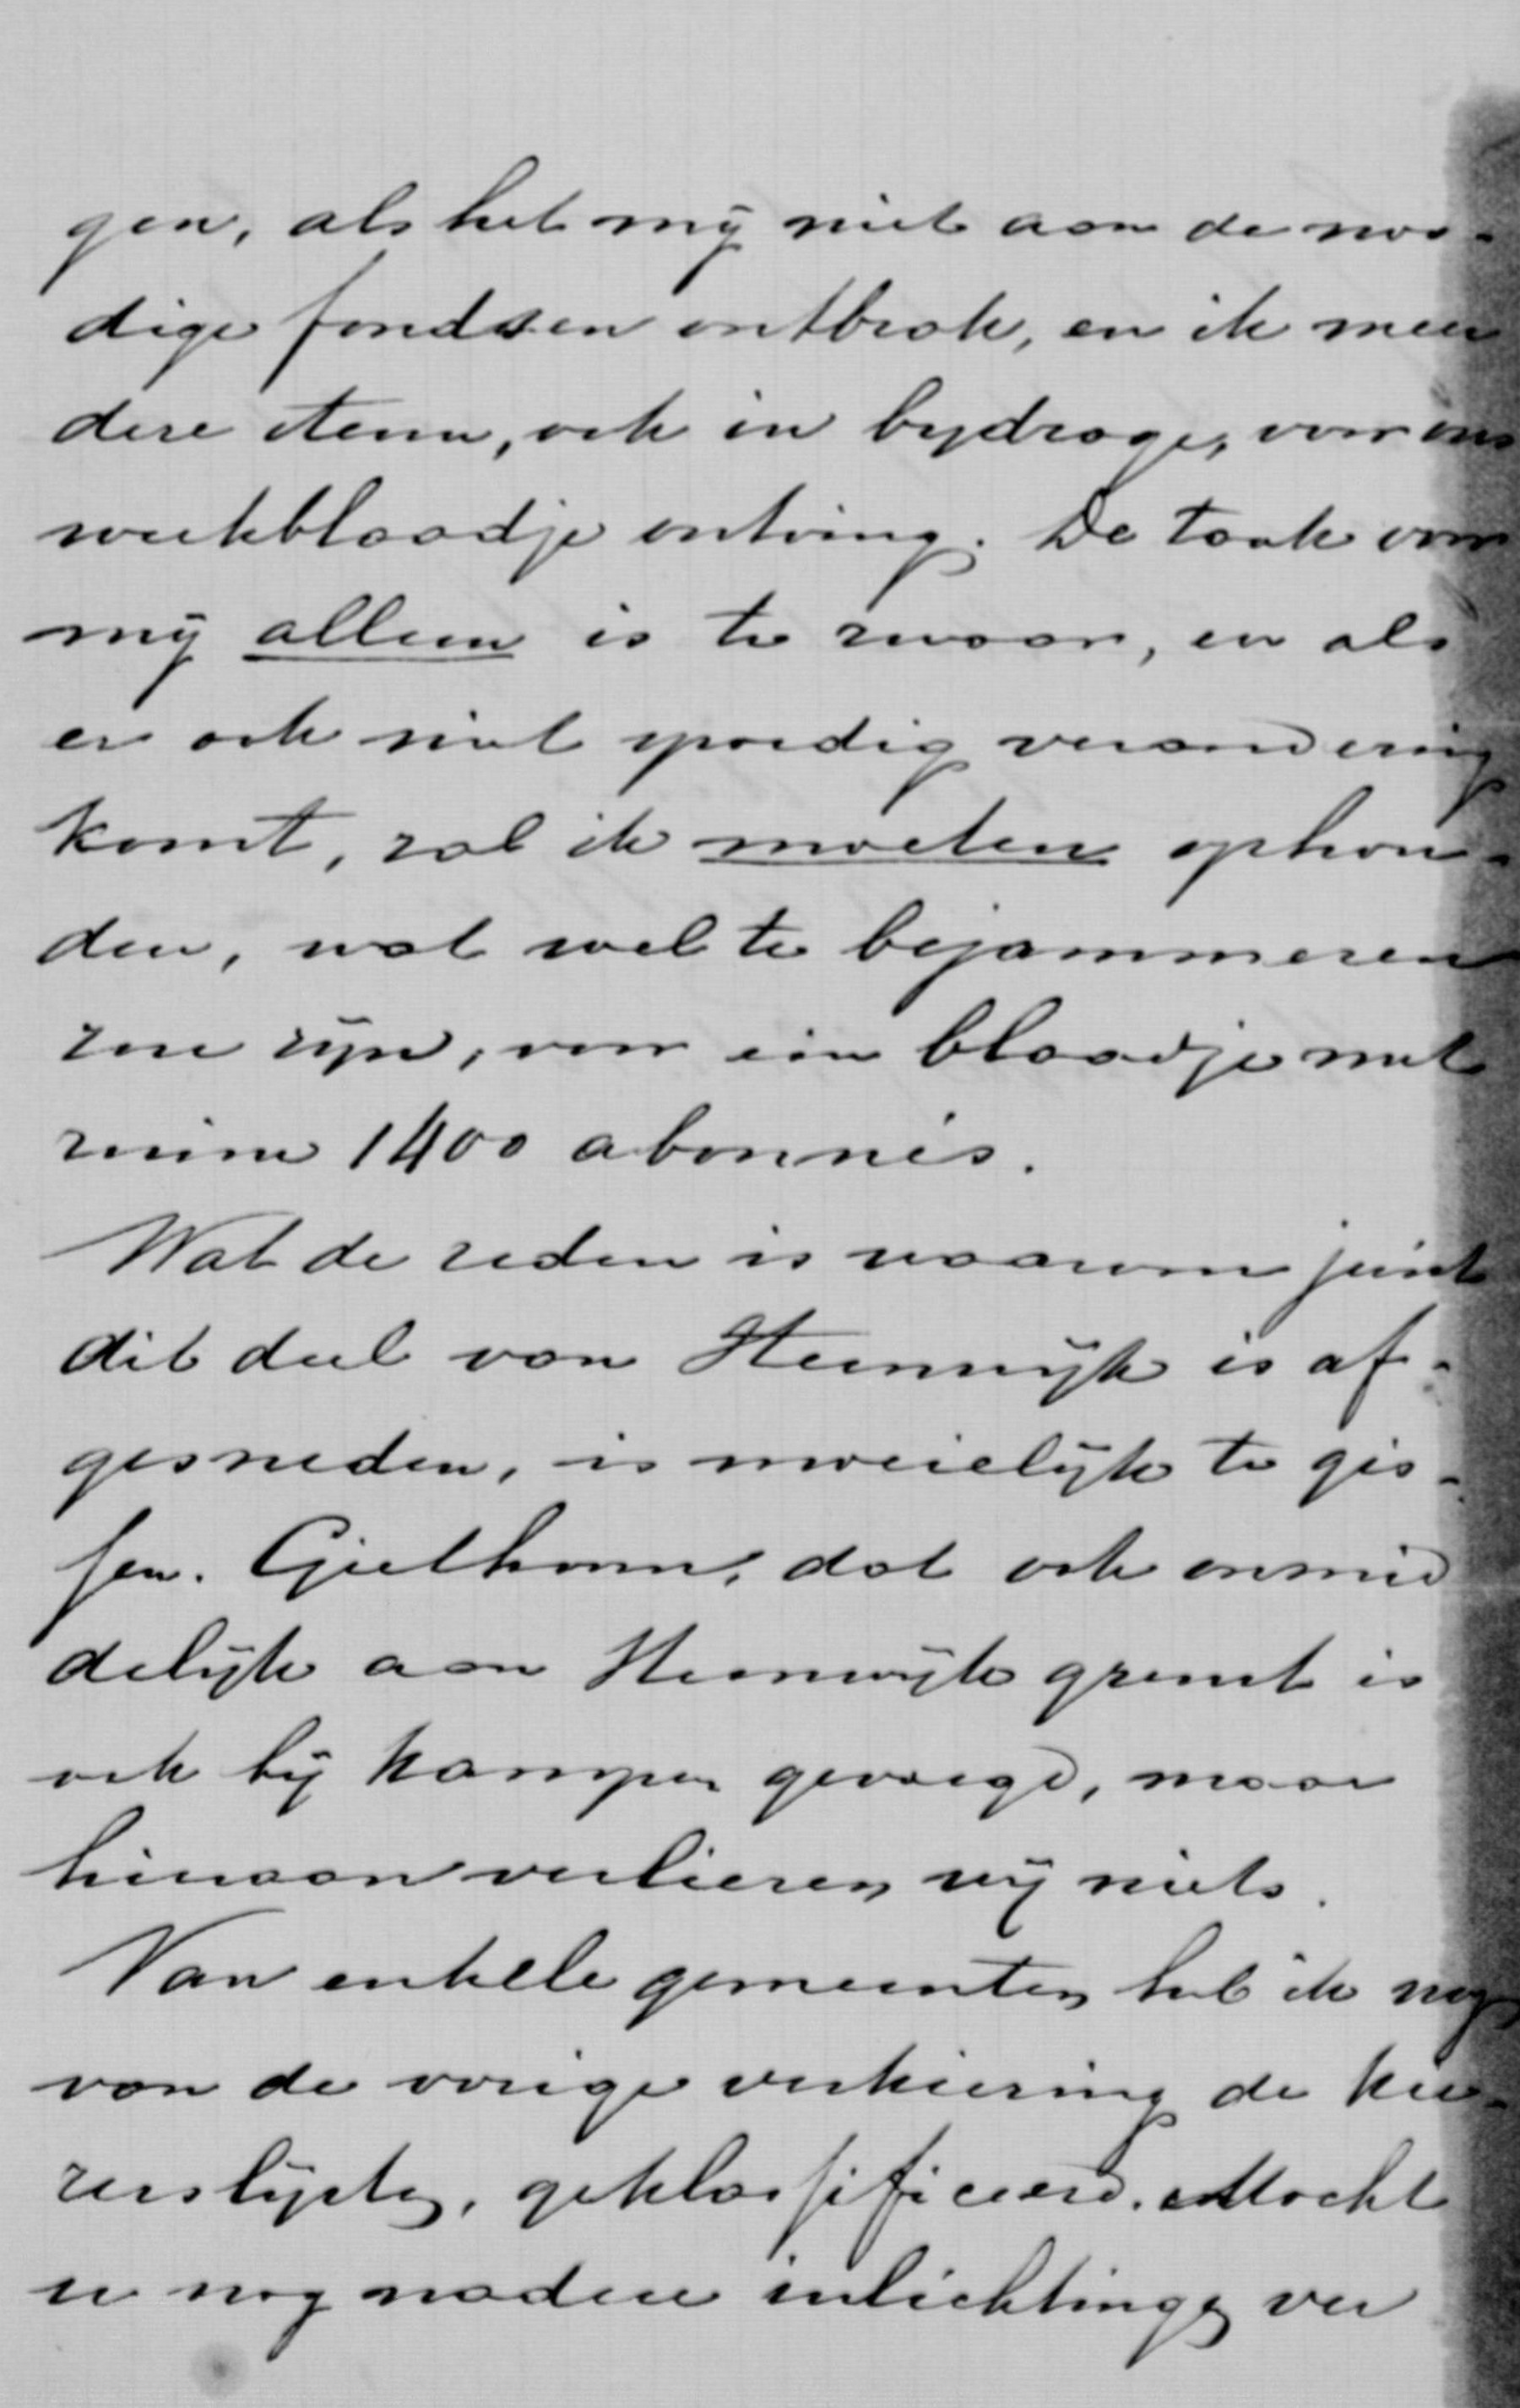 gen, als het mij niet aan de noo-
dige fondsen ontbrak, en ik meer
dere steun, ook in bijdrage, voor ons
weekblaadje ontving. De taak voor
mij alleen is te zwaar, en als
er ook niet spoedig verandering
komt, zal ik moeten ophou-
den, wat wel te bejammeren
zou zijn, voor een blaadje met
ruim 1400 abonnés.
Wat de reden is waarom juist
dit deel van Steenwijk is af-
gesneden, is moeielijk te gis-
sen. Giethoorn, dat ook onmid
delijk aan Steenwijk grenst is
ook bij Kampen gevoegd, maar
hieraan verliezen wij niets.
Van enkele gemeenten heb ik nog
van de vorige verkiezing de kie-
zerslijsten, geklassificeerd. Mocht
u nog nadere inlichtingen ver